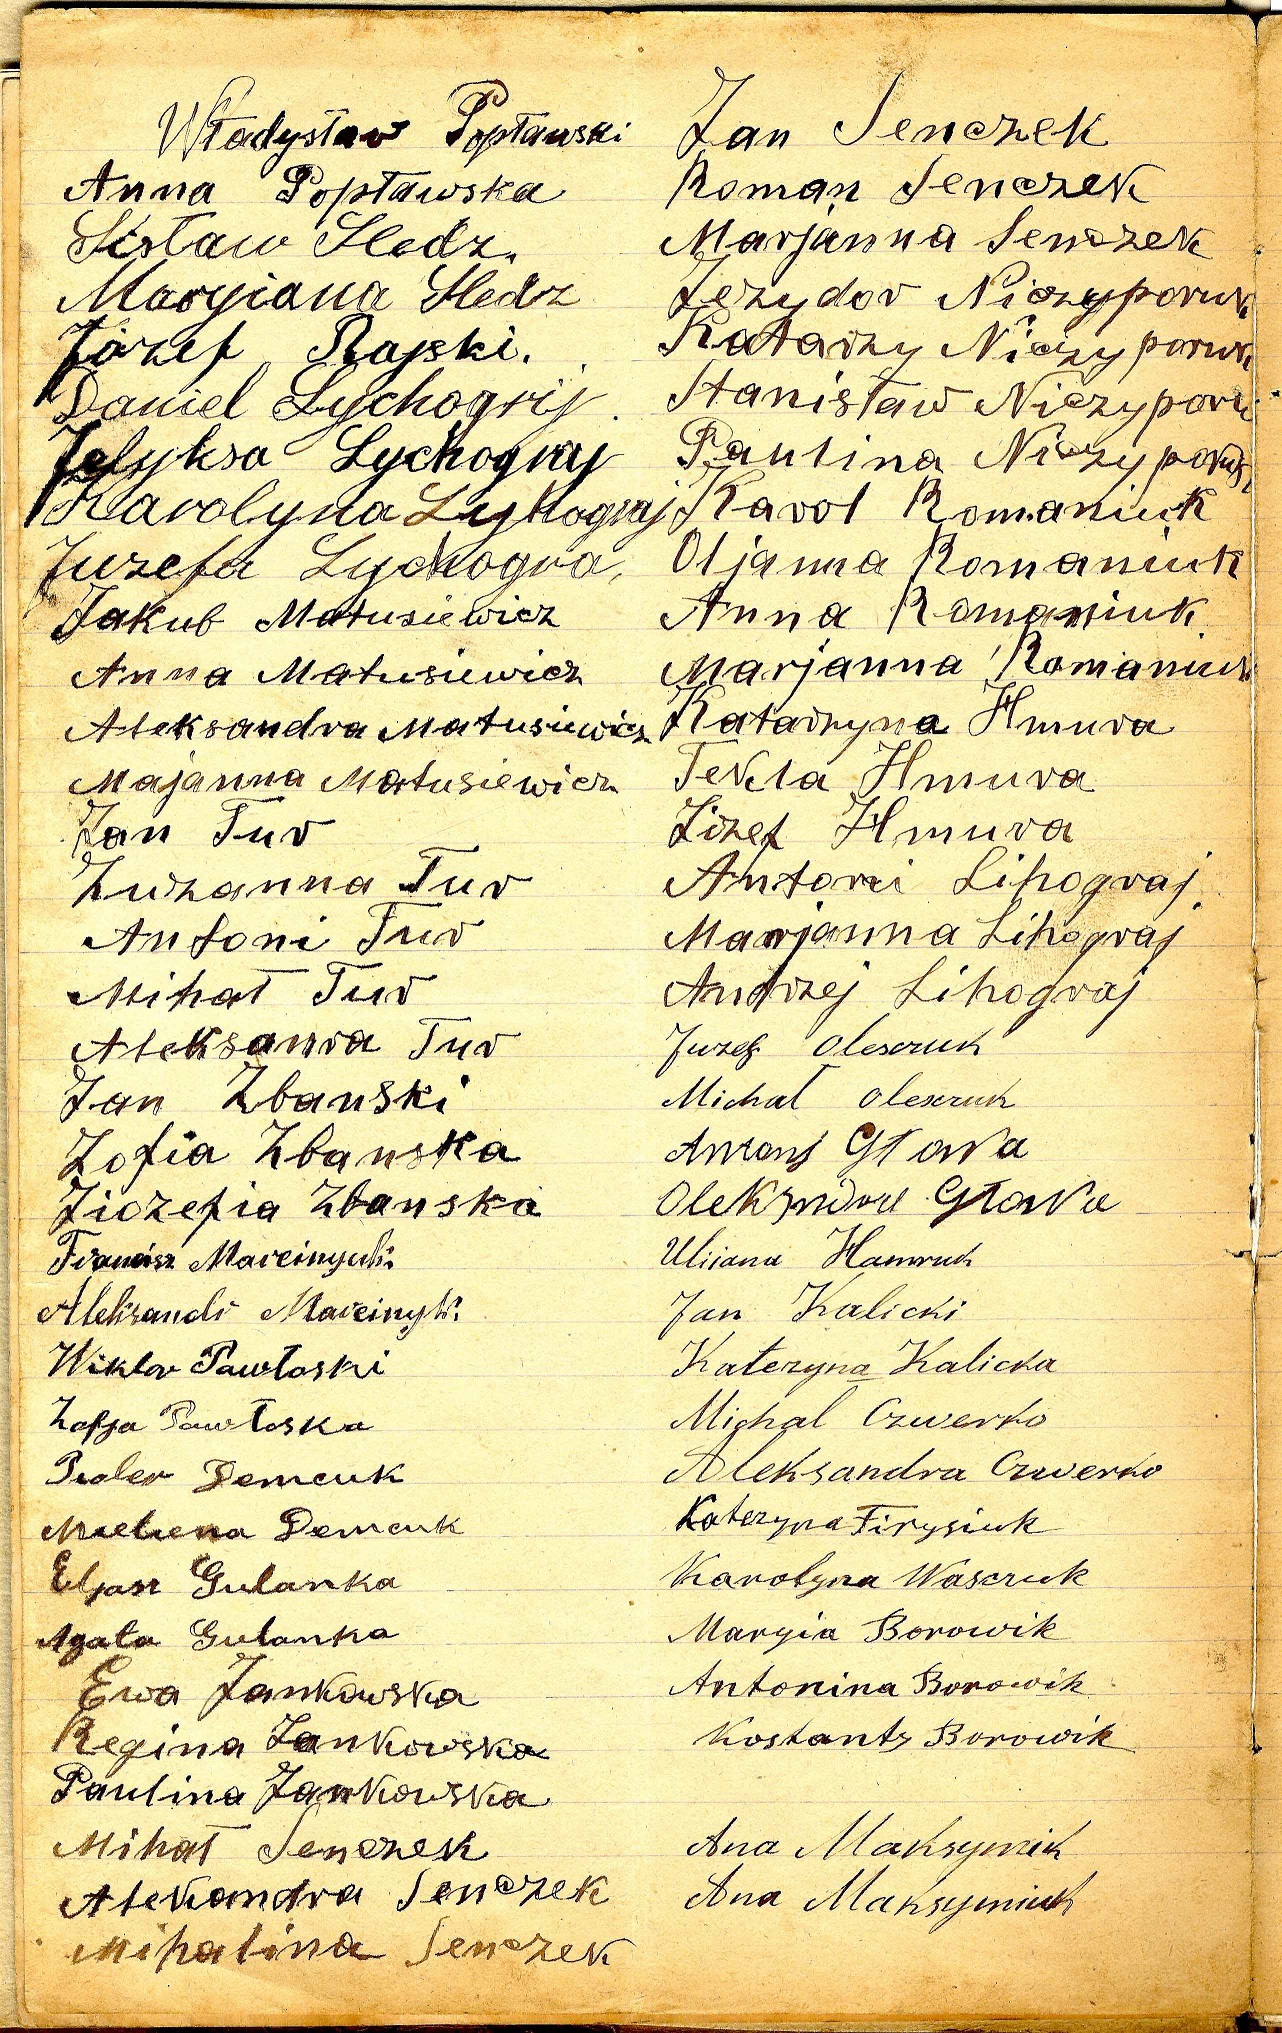 Władysław Popławski
Anna Popławska
Sisław Sledz.
Maryiana Sledz
Józef Rajski.
Daniel Lychogrij
Felyksa Lychograj
Karolyna Lyhograj
Juzefa Lychogra,
Jakub Matusiewicz
Anna Matusiewicz
Aleksandra Matusiewicz
Majanna Matusiewicz
Jan Tur
Zuzanna Tur
Antoni Tur
Mihał Tur
Aleksanra Tur
Jan Zbanski
Zofia Zbanska
Jiozefia Zbanska
Francisz
Aleksandr
Wiktor Pawłoski
Zofja Pawłoska
Demcuk
Demcuk
Eljasz Gulanka
Agata Gulanka
Ewa Jankowska
Regina Jankowska
Paulina Jankowska
Mihał Senczek
Alekandra Senczek
Mihalina Senczek
Jan Senczek
Roman Senczek
Marjanna Senczek
Jezydor Niczyporuk
Katarzy Niczyporuk
Stanisław Niczyporu
Paulina Niczyporuk
Karol Romaniuk
Oljanna Romaniuk
Anna Romaniuk
Marjanna Romaniuk
Katarzyna Hmura
Tekla Hmura
Jizef Hmura
Antoni Lihograj
Marjanna Lihograj
Andrzej Lihograj
Juzef Olesczuk
Michał Olesczuk
Antonj Głowa
Głowa
Uliiana Hawruk
Jan Kalicki
Katezyna Kalicka
Michal Czwerko
Aleksandra Czwerko
Katezyna Firysiuk
Karolyna Wasczuk
Maryia Borowik
Antonina Borowik
Kostanty Borowik
Ana Maksymiuk
Ana Maksymiuk